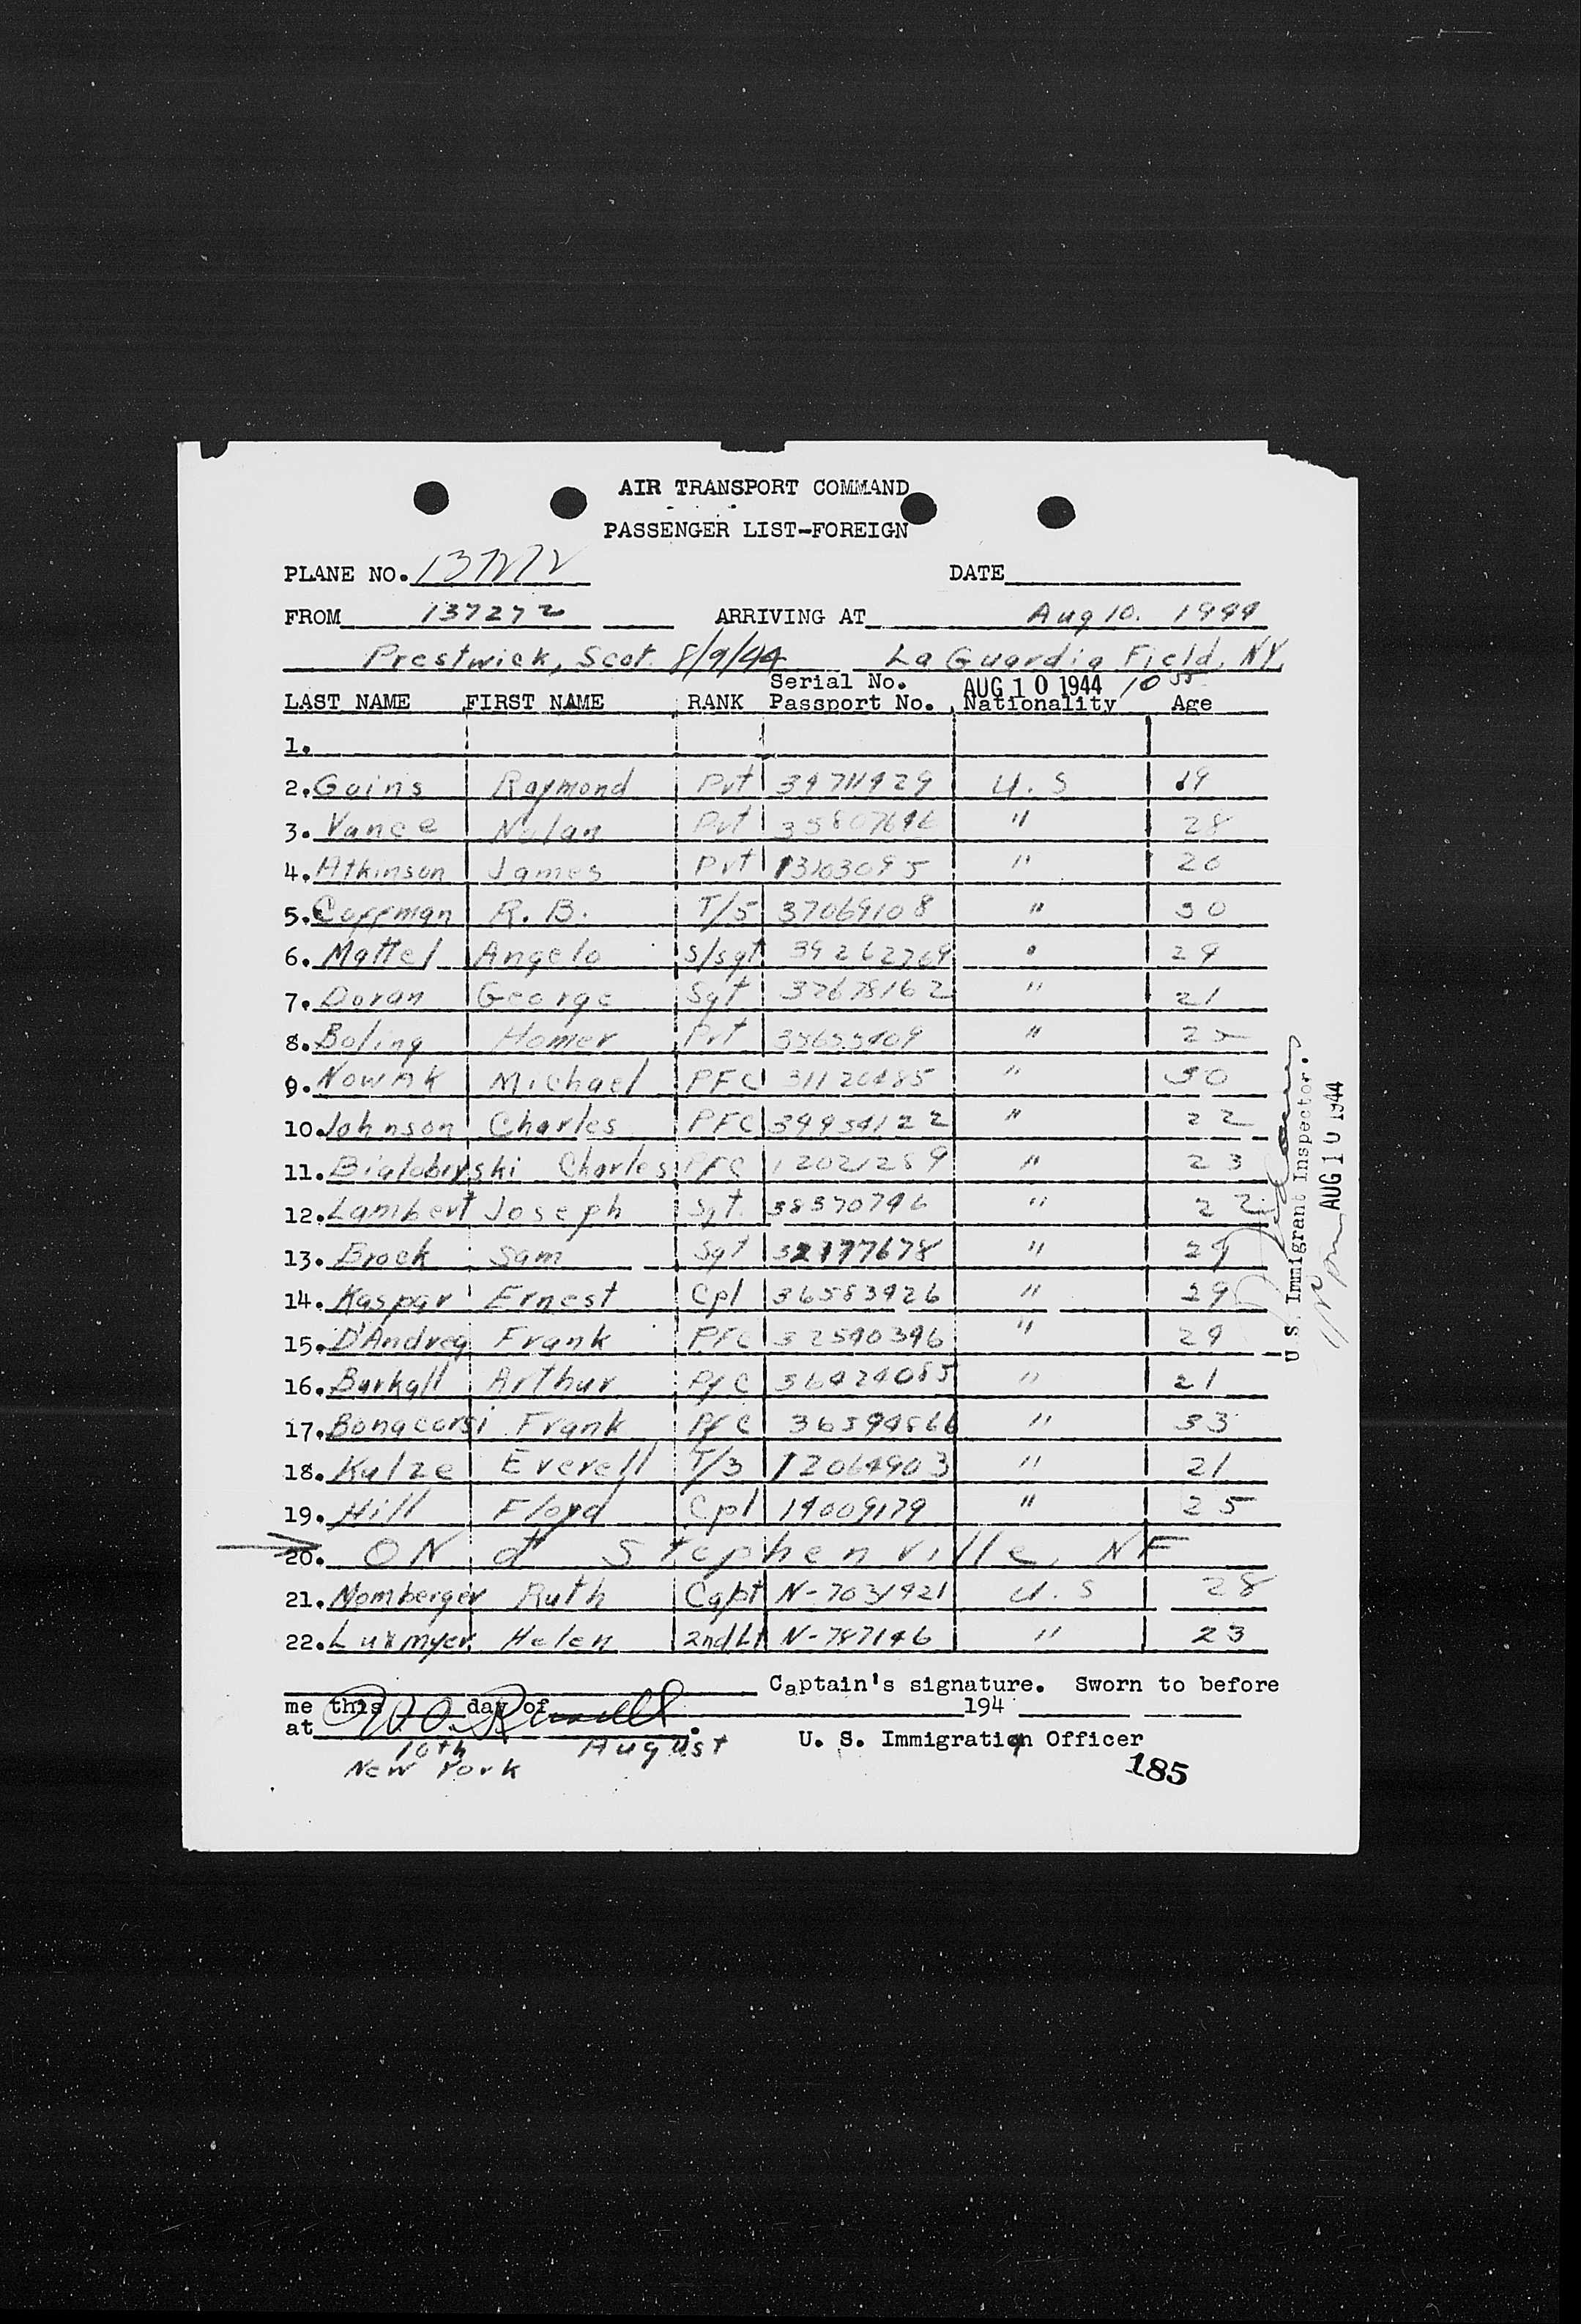 AIR TRANSPORT COMMAND
PASSENGER LIST-FOREIGN
PLANE NO. 137272 DATE
FROM 137272 ARRIVING AT Aug 10. 1944
Prestwick, Scot. 8/9/44 La Guardia Field, NY.
Serial No. AUG 10 1944 10 55
LAST NAME FIRST NAME RANK Passport No. Nationality Age
1.
2. Gains Raymond Pvt 39711929 U.S 19
3. Vance Nolan Pvt 35807646 " 28
4. Atkinson James Pvt 13103095 " 20
5. Coffman R. B. T/5 37069108 " 30
6. Mattel Angelo S/sgt 39262769 " 29
7. Doran George Sgt 32678162 " 21
8. Boling Homer Pvt 35655409 " 25
9. Nowak Michael PFC 31120485 " 30
10. Johnson Charles PFC 39954122 " 22
11. Bialobryski Charles PFC 12021289 " 23
12. Lambert Joseph Sgt. 38370796 " 22
13. Brock Sam Sgt 32177678 " 29
14. Kaspar Ernest Cpl 36583926 " 29
15. D'Andrea Frank PFC 32590396 " 29
16. Barkall Arthur Pfc 36424085 " 21
17. Bonacorsi Frank Pfc 36594866 " 33
18. Kulze Everell T/3 12064903 " 21
19. Hill Floyd Cpl 14009179 " 25
20. ON at Stephenville, NF
21. Momberger Ruth Capt N-7031921 U.S 28
22. Luxmyer Helen 2nd Lt N-787146 " 23
Captain's signature. Sworn to before
me this day of 194
at
10th August U. S. Immigration Officer
New York 185
U. S. Immigrant Inspector.
AUG 10 1944